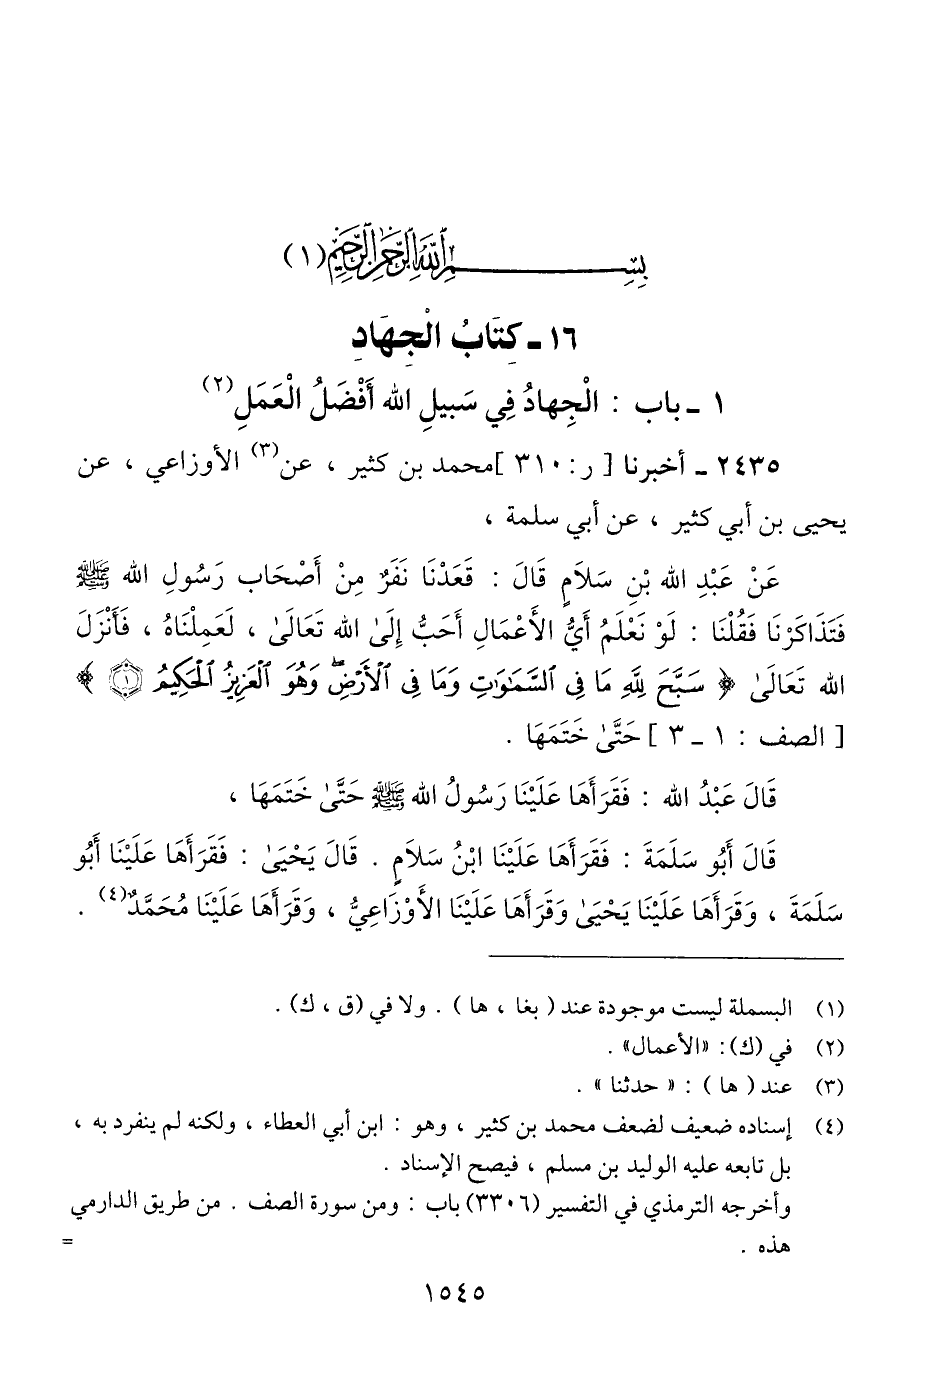 بِسْمِ اللَّهِ الرَّحْمَٰنِ الرَّحِيمِ (١)
١٦ ـ كِتَابُ الْجِهَادِ
١ ـ باب : الْجِهادُ فِي سَبيلِ الله أَفْضَلُ الْعَمَلِ(٢)
٢٤٣٥ ـ أخبرنا [ ر: ٣١٠ ]محمد بن كثير ، عن(٣) الأوزاعي ، عن
يحيى بن أبي كثير ، عن أبي سلمة ،
عَنْ عَبْدِ الله بْنِ سَلَامٍ قَالَ : قَعَدْنَا نَفَرٌ مِنْ أَصْحَاب رَسُولِ الله ﷺ
فَتَذَاكَرْنَا فَقُلْنَا : لَوْ نَعْلَمُ أَيُّ الأَعْمَالِ أَحَبُّ إِلَىٰ الله تَعَالَىٰ ، لَعَمِلْنَاهُ ، فَأَنْزَلَ
الله تَعَالَىٰ ﴿ سَبَّحَ لِلَّهِ مَا فِى ٱلسَّمَٰوَٰتِ وَمَا فِى ٱلْأَرْضِۖ وَهُوَ ٱلْعَزِيزُ ٱلْحَكِيمُ ١ ﴾
[ الصف : ١ ـ ٣ ] حَتَّىٰ خَتَمَهَا .
قَالَ عَبْدُ الله : فَقَرَأَهَا عَلَيْنَا رَسُولُ الله ﷺ حَتَّىٰ خَتَمَهَا ،
قَالَ أَبُو سَلَمَةَ : فَقَرَأَهَا عَلَيْنَا ابْنُ سَلَامٍ . قَالَ يَحْيَىٰ : فَقَرَأَهَا عَلَيْنَا أَبُو
سَلَمَةَ ، وَقَرَأَهَا عَلَيْنَا يَحْيَىٰ وَقَرَأَهَا عَلَيْنَا الأَوْزَاعِيُّ ، وَقَرَأَهَا عَلَيْنَا مُحَمَّدٌ(٤) .
(١) البسملة ليست موجودة عند ( بغا ، ها ) . ولا في (ق ، ك) .
(٢) في (ك): «الأعمال» .
(٣) عند ( ها ) : « حدثنا » .
(٤) إسناده ضعيف لضعف محمد بن كثير ، وهو : ابن أبي العطاء ، ولكنه لم ينفرد به ،
بل تابعه عليه الوليد بن مسلم ، فيصح الإسناد .
وأخرجه الترمذي في التفسير (٣٣٠٦) باب : ومن سورة الصف . من طريق الدارمي
هذه . =
١٥٤٥